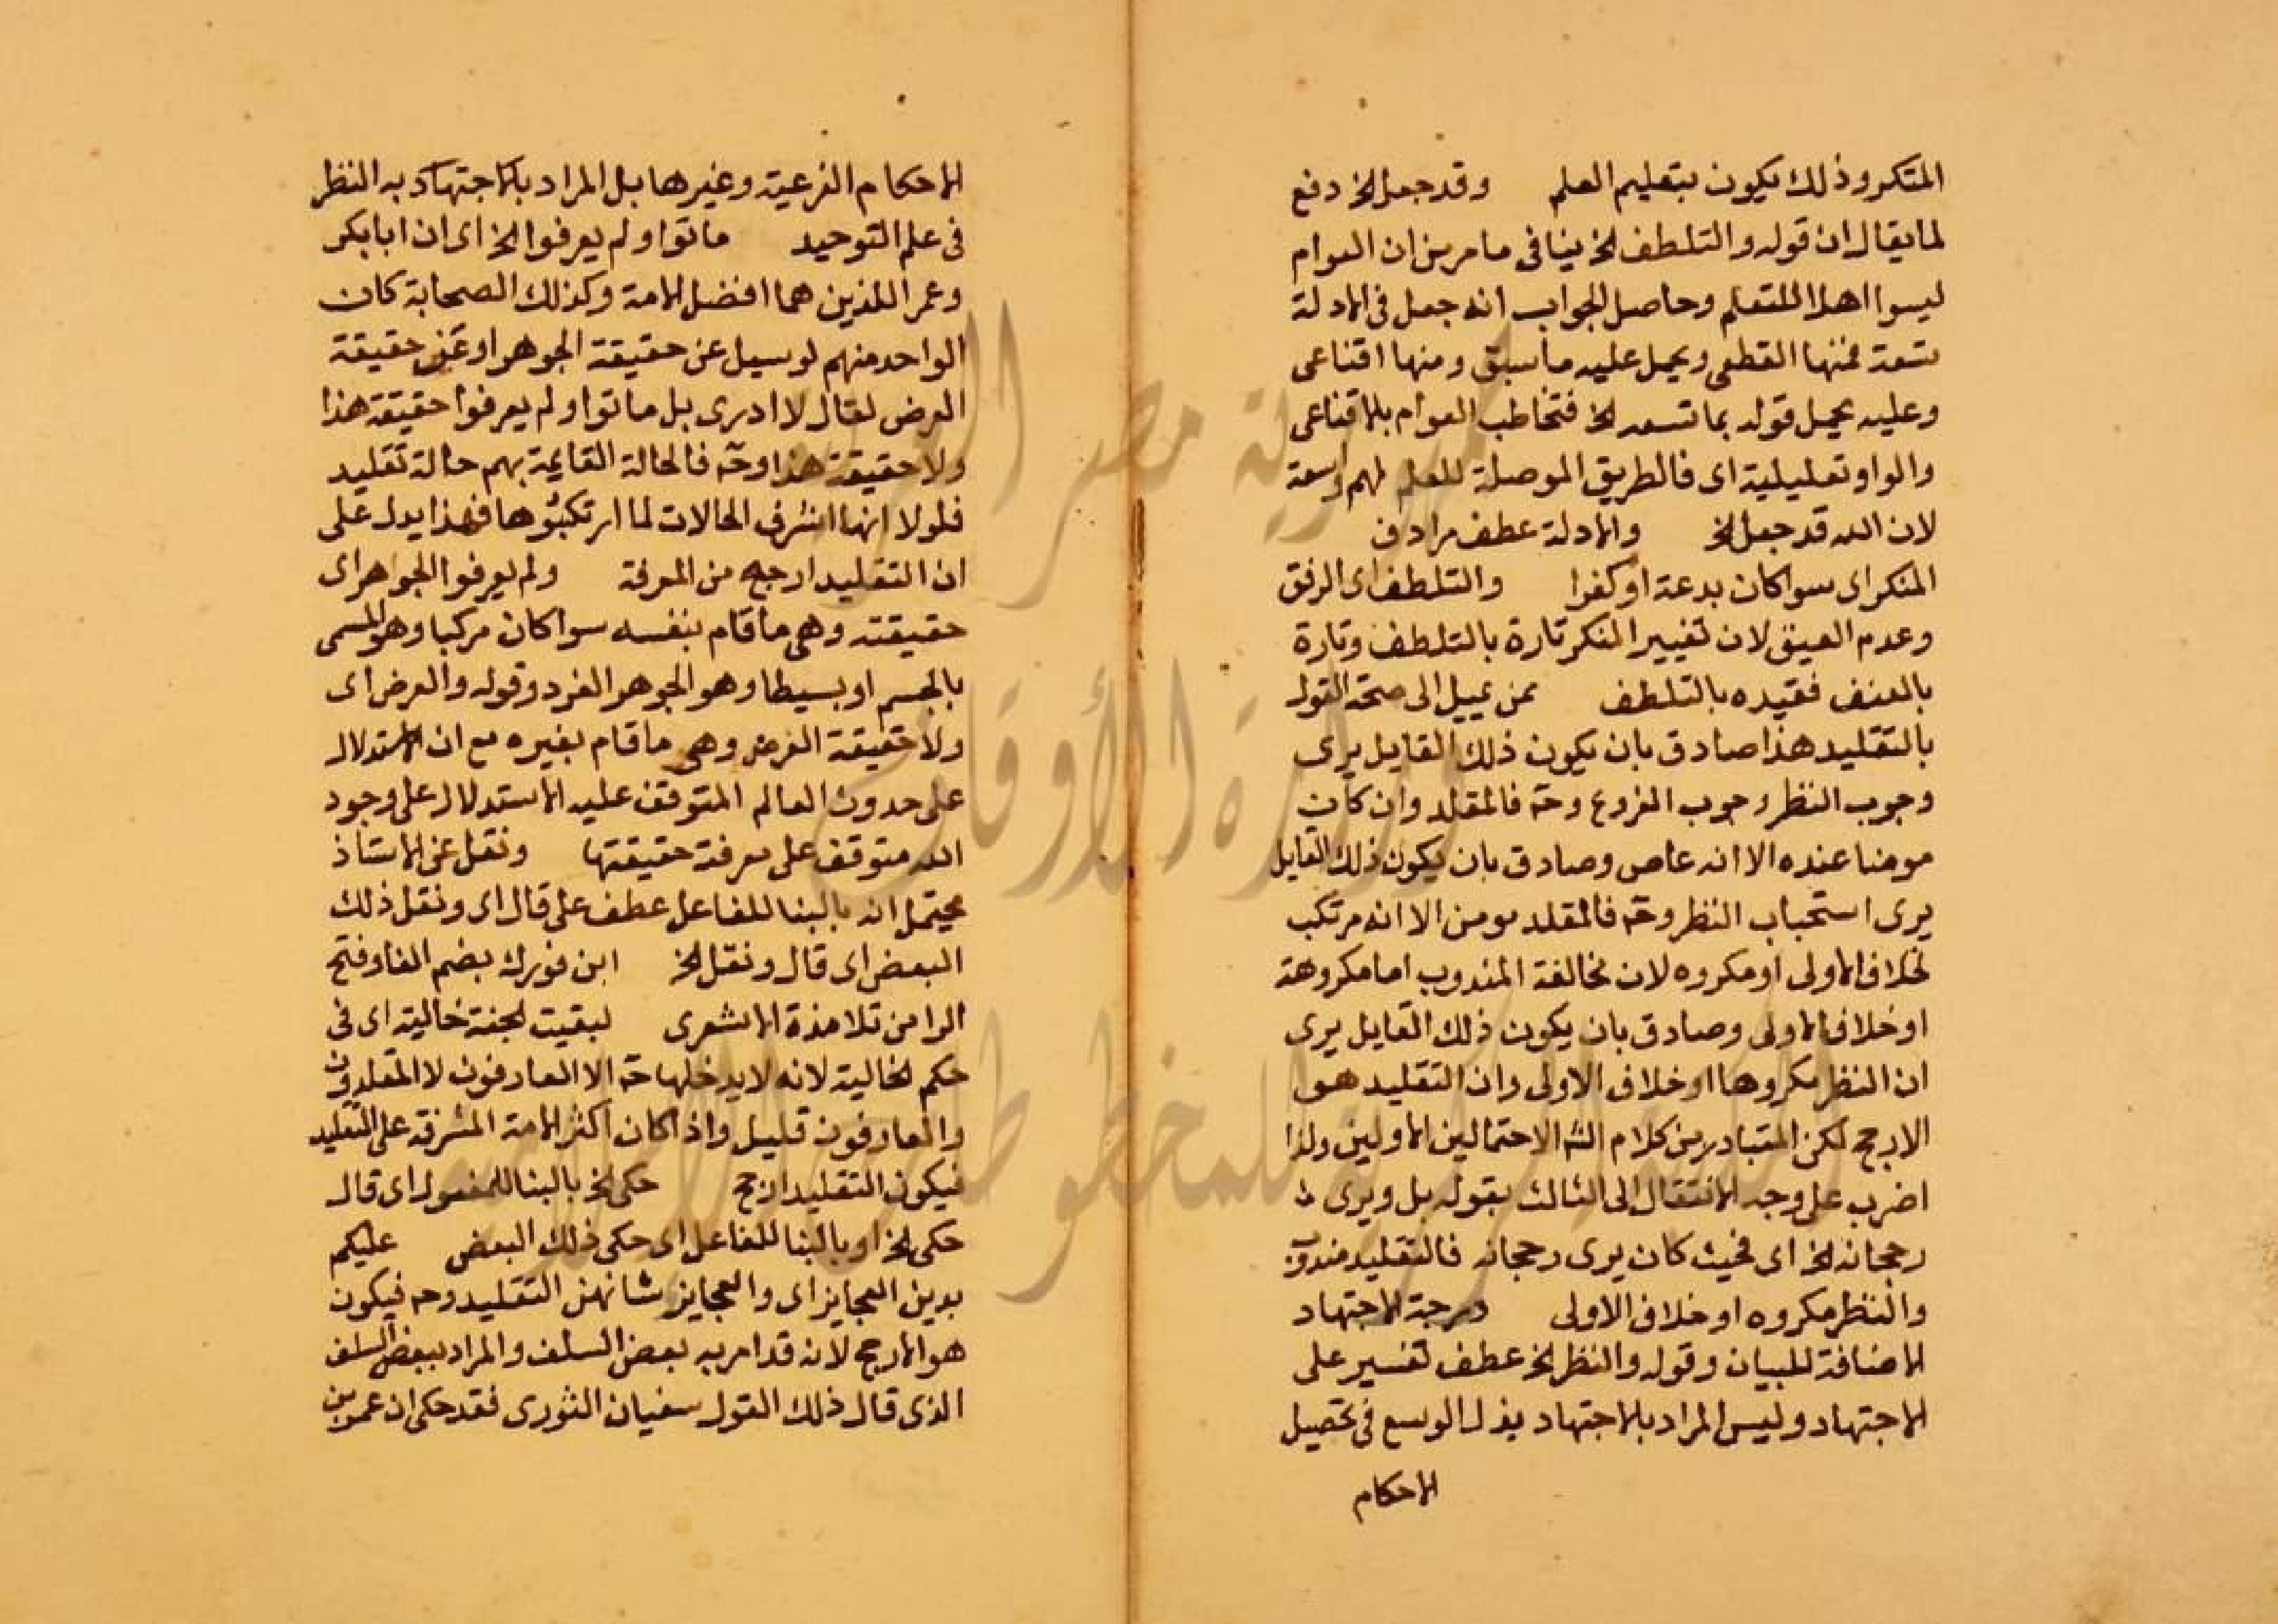 المتكرر وذلك يكون بتعليم العلم وقد جعل الخ دفع
لما يقال ان قوله والتلطف الخ ينافى ما مر من ان العوام
ليسوا اهلا للتعلم وحاصل الجواب انه جعل فى الادلة
سعة فمنها القطعى ويحمل عليه ما سبق ومنها اقناعى
وعليه يحمل قوله بما تسعه الخ فتخاطب العوام بالاقناعى
والواو تعليلية اى فالطريق الموصلة للعلم لهم واسعة
لان الله قد جعل الخ والادلة عطف مرادف
المنكر اى سوا كان بدعة او كفرا والتلطف اى الرفق
وعدم العنف لان تغيير المنكر تارة بالتلطف وتارة
بالعنف فقيده بالتلطف ممن يميل الى صحة القول
بالتقليد هذا صادق بان يكون ذلك القايل يرى
وجوب النظر وجوب الفروع وحـ فالمقلد وان كان
مومنا عنده الا انه عاص وصادق بان يكون ذلك القايل
يرى استحباب النظر وحـ فالمقلد مومن الا انه مرتكب
لخلاف الاولى او مكروه لان مخالفة المندوب اما مكروهة
او خلاف الاولى وصادق بان يكون ذلك القايل يرى
ان النظر مكروها او خلاف الاولى وان التقليد هو
الارجح لكن المتبادر من كلام الشـ الاحتمالين الاولين ولذا
اضرب على وجه الانتقال الى الثالث بقوله بل ويرى
رجحانه الخ اى فحيث كان يرى رجحانه فالتقليد مندوب
والنظر مكروه او خلاف الاولى درجة الاجتهاد
الاضافة للبيان وقوله والنظر الخ عطف تفسير على
الاجتهاد وليس المراد بالاجتهاد بذل الوسع فى تحصيل
الاحكام
الاحكام الفرعية وغيرها بل المراد بالاجتهاد به النظر
فى علم التوحيد ماتوا ولم يعرفوا الخ اى ان ابا بكر
وعمر اللذين هما افضل الامة وكذلك الصحابة كان
الواحد منهم لو سيل عن حقيقة الجوهر او عن حقيقة
العرض لقال لا ادرى بل ماتوا ولم يعرفوا حقيقة هذا
ولا حقيقة هذا وحـ فالحالة القايمة بهم حالة تقليد
فلولا انها اشرف الحالات لما ارتكبوها فهذا يدل على
ان التقليد ارجح من المعرفة ولم يعرفوا الجواهر اى
حقيقته وهى ما قام بنفسه سوا كان مركبا وهو المسمى
بالجسم او بسيطا وهو الجوهر الفرد وقوله والعرض اى
ولا حقيقة العرض وهى ما قام بغيره مع ان الاستدلال
على حدوث العالم المتوقف عليه الاستدلال على وجود
الله متوقف على معرفة حقيقتها ونقل عن الاستاذ
يحتمل انه بالبنا للفاعل عطف على قال اى ونقل ذلك
البعض اى قال ونقل الخ ابن فورك بضم الفا وفتح
الرا من تلامذة الاشعرى لبقيت الجنة خالية اى فى
حكم الخالية لانه لا يدخلها حـ الا العارفون لا المقلدون
والعارفون قليل واذا كان اكثر الامة المشرفة على التقليد
فيكون التقليد ارجح حكى الخ بالبنا للمفعول اى قال
حكى الخ او بالبنا للفاعل اى حكى ذلك البعض عليكم
بدين العجايز اى والعجايز شانهن التقليد وحـ فيكون
هو الارجح لانه قد امر به بعض السلف والمراد ببعض السلف
الذى قال ذلك القول سفيان الثورى فقد حكى ان عمرو بن